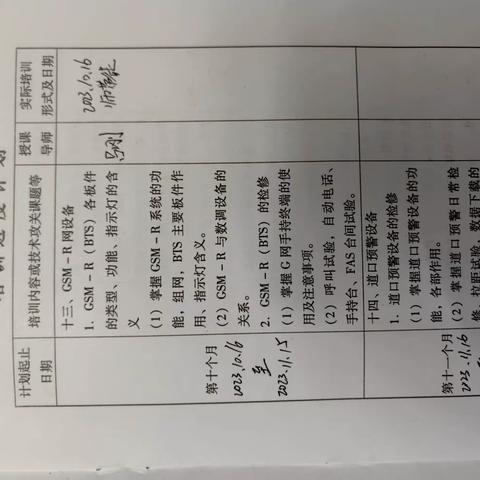 计划起止
日期
培训内容或技术攻关课题等
授课
导师
实际培训
形式及日期
第十个月
2023.10.16
至
2023.11.15
十三、GSM-R网设备
1. GSM-R(BTS)各板件
的类型、功能、指示灯的含
义
(1)掌握GSM-R系统的功
能,组网,BTS主要板件作
用、指示灯含义。
(2)GSM-R与数调设备的
关系。
2. GSM-R(BTS)的检修
(1)掌握G网手持终端的使
用及注意事项。
(2)呼叫试验,自动电话、
手持台、FAS台间试验。
2023.10.16
第十一个月
2023.11.16
十四、道口预警设备
1. 道口预警设备的检修
(1)掌握道口预警设备的功
能,各部作用。
(2)掌握道口预警日常检
修,拉距试验,数据下载的